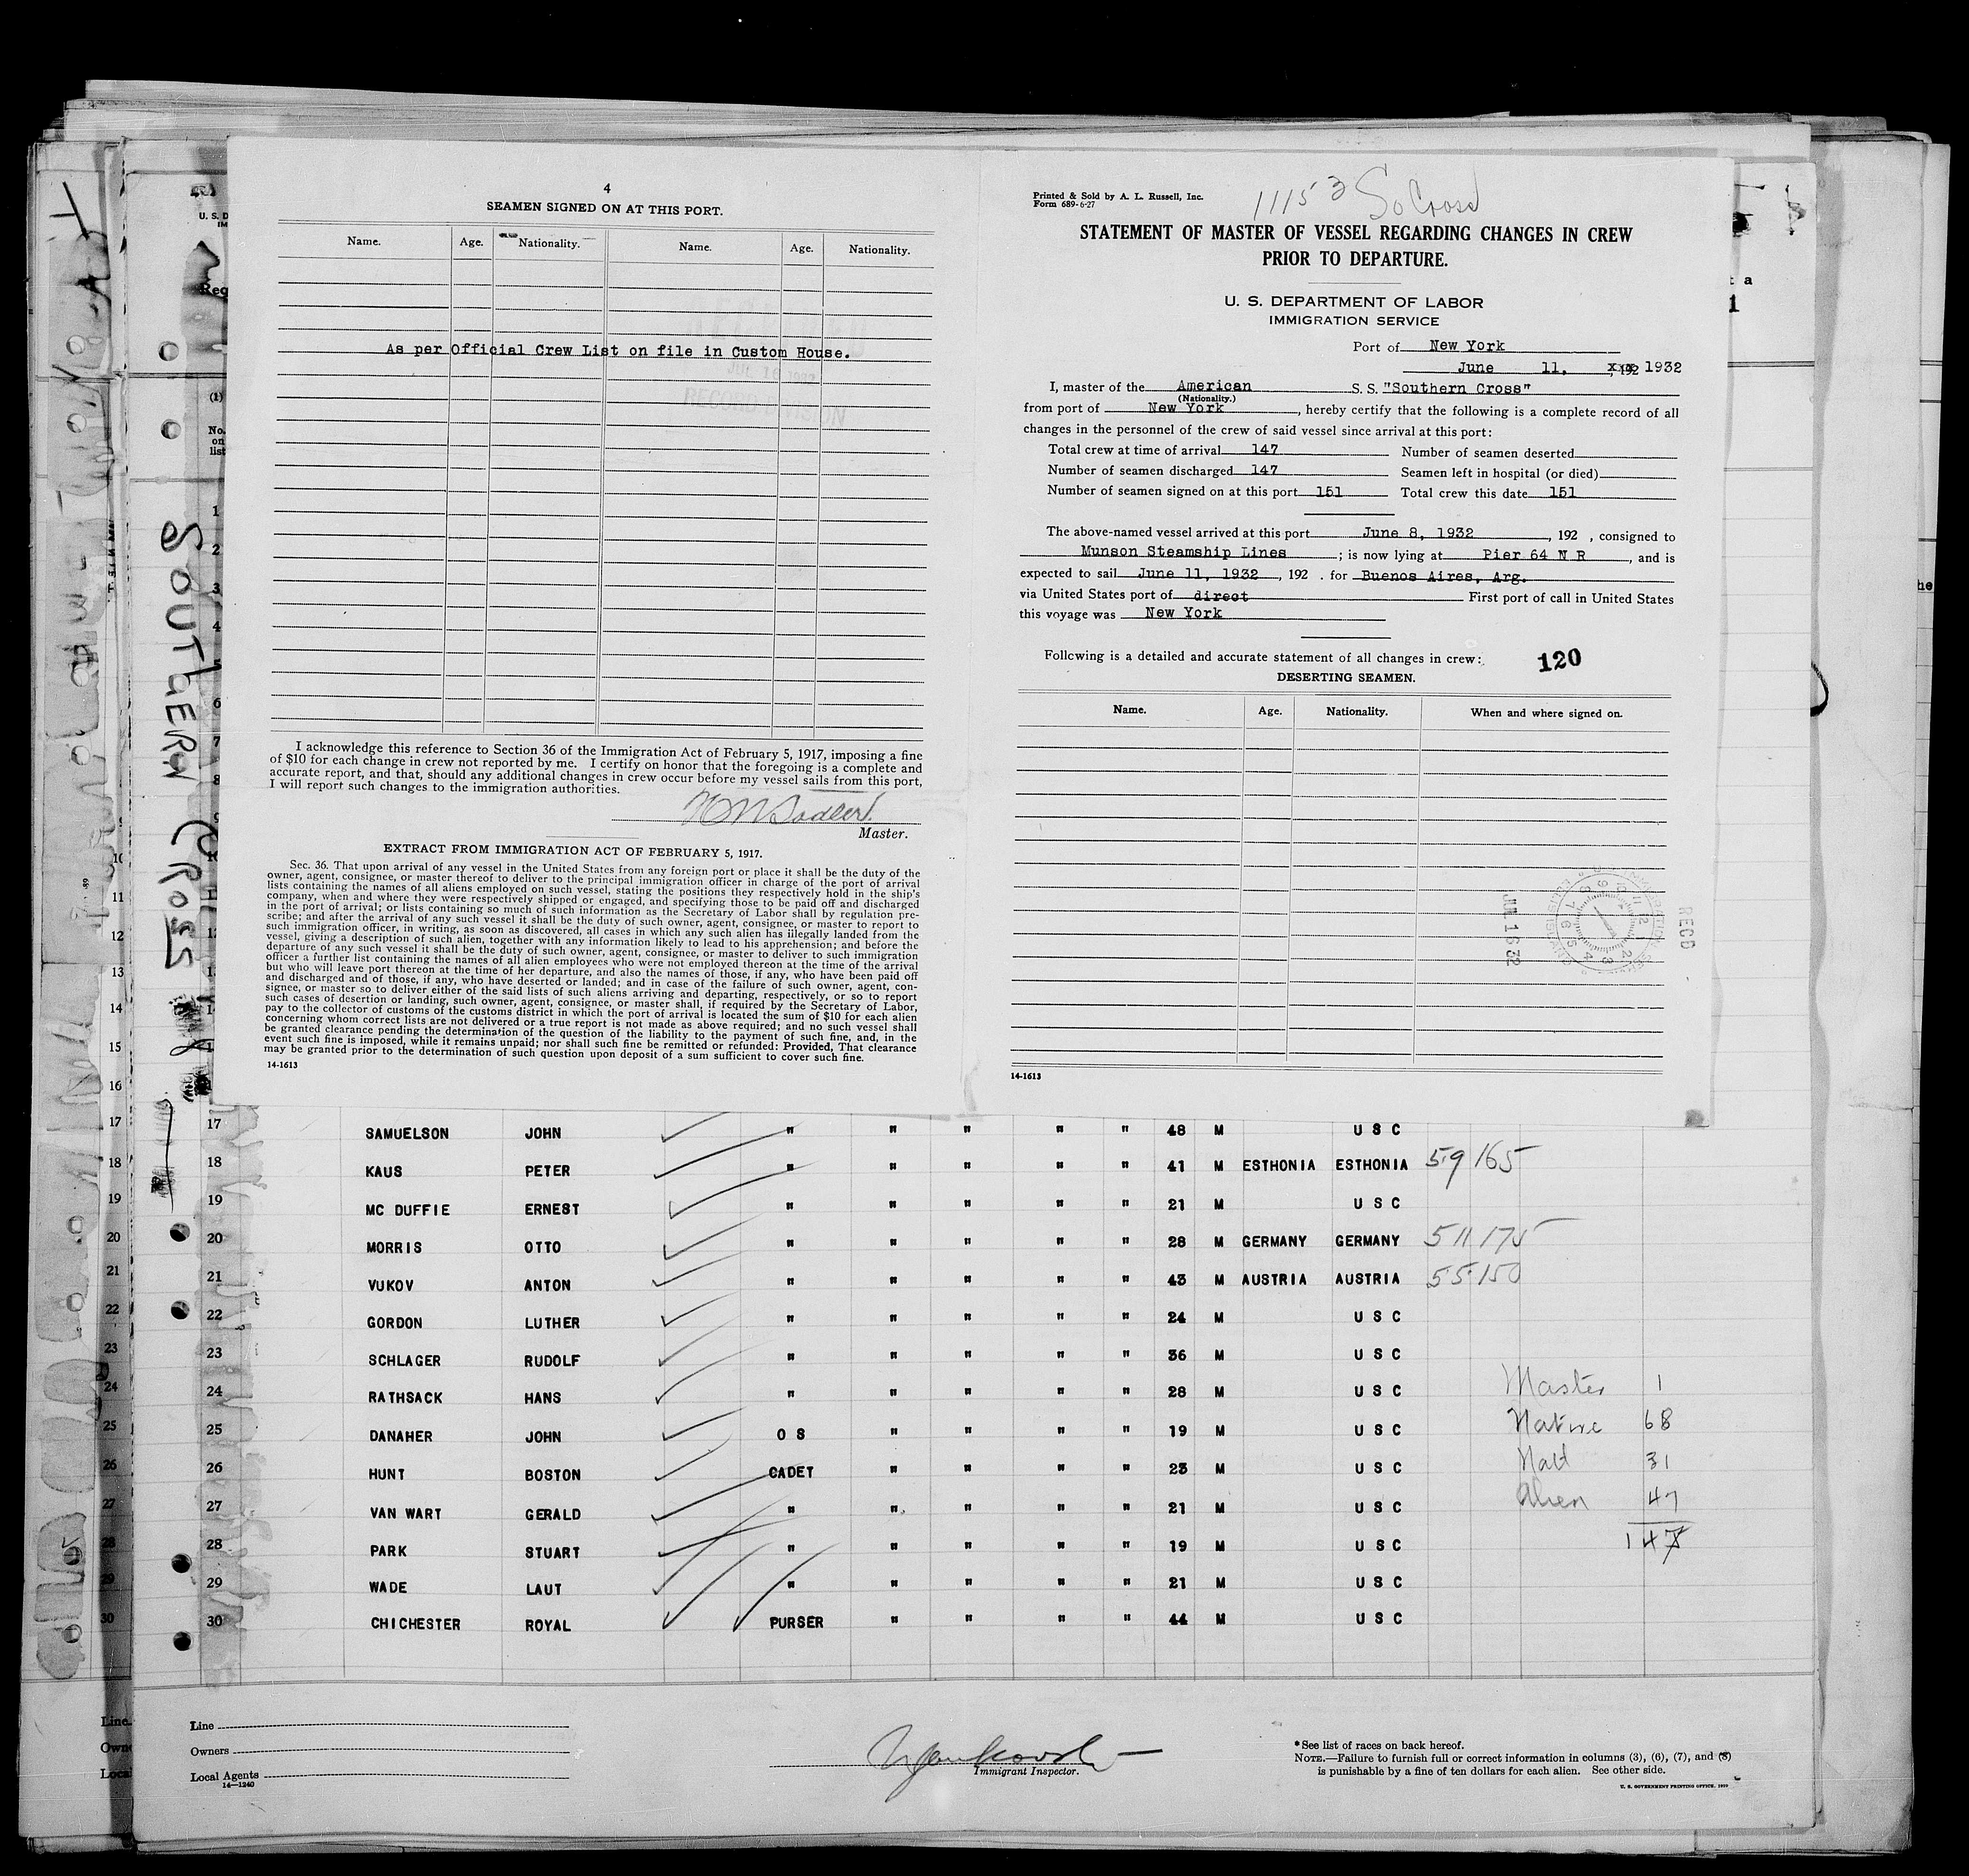 4
SEAMEN SIGNED ON AT THIS PORT.
Name. Age. Nationality. Name. Age. Nationality.
As per Official Crew List on file in Custom House.
RECORD DIVISION
I acknowledge this reference to Section 36 of the Immigration Act of February 5, 1917, imposing a fine
of $10 for each change in crew not reported by me. I certify on honor that the foregoing is a complete and
accurate report, and that, should any additional changes in crew occur before my vessel sails from this port,
I will report such changes to the immigration authorities.
Master.
EXTRACT FROM IMMIGRATION ACT OF FEBRUARY 5, 1917.
Sec. 36. That upon arrival of any vessel in the United States from any foreign port or place it shall be the duty of the
owner, agent, consignee, or master thereof to deliver to the principal immigration officer in charge of the port of arrival
lists containing the names of all aliens employed on such vessel, stating the positions they respectively hold in the ship's
company, when and where they were respectively shipped or engaged, and specifying those to be paid off and discharged
in the port of arrival; or lists containing so much of such information as the Secretary of Labor shall by regulation pre-
scribe; and after the arrival of any such vessel it shall be the duty of such owner, agent, consignee, or master to report to
such immigration officer, in writing, as soon as discovered, all cases in which any such alien has illegally landed from the
vessel, giving a description of such alien, together with any information likely to lead to his apprehension; and before the
departure of any such vessel it shall be the duty of such owner, agent, consignee, or master to deliver to such immigration
officer a further list containing the names of all alien employees who were not employed thereon at the time of the arrival
but who will leave port thereon at the time of her departure, and also the names of those, if any, who have been paid off
and discharged and of those, if any, who have deserted or landed; and in case of the failure of such owner, agent, con-
signee, or master so to deliver either of the said lists of such aliens arriving and departing, respectively, or so to report
such cases of desertion or landing, such owner, agent, consignee, or master shall, if required by the Secretary of Labor,
pay to the collector of customs of the customs district in which the port of arrival is located the sum of $10 for each alien
concerning whom correct lists are not delivered or a true report is not made as above required; and no such vessel shall
be granted clearance pending the determination of the question of the liability to the payment of such fine, and, in the
event such fine is imposed, while it remains unpaid; nor shall such fine be remitted or refunded: Provided, That clearance
may be granted prior to the determination of such question upon deposit of a sum sufficient to cover such fine.
14-1613
Printed & Sold by A. L. Russell, Inc.
Form 689-6-27
11153 So Cross
STATEMENT OF MASTER OF VESSEL REGARDING CHANGES IN CREW
PRIOR TO DEPARTURE.
U. S. DEPARTMENT OF LABOR
IMMIGRATION SERVICE
Port of New York
June 11, , 192 1932
I, master of the American S. S. "Southern Cross"
(Nationality.)
from port of New York , hereby certify that the following is a complete record of all
changes in the personnel of the crew of said vessel since arrival at this port:
Total crew at time of arrival 147 Number of seamen deserted
Number of seamen discharged 147 Seamen left in hospital (or died)
Number of seamen signed on at this port 151 Total crew this date 151
The above-named vessel arrived at this port June 8, 1932 , 192 , consigned to
Munson Steamship Lines ; is now lying at Pier 64 N R , and is
expected to sail June 11, 1932 , 192 . for Buenos Aires, Arg.
via United States port of direct First port of call in United States
this voyage was New York
Following is a detailed and accurate statement of all changes in crew:
120
DESERTING SEAMEN.
Name. Age. Nationality. When and where signed on.
RECD
14-1613
SOUTHERN CROSS
17 SAMUELSON JOHN " " " " " 48 M U S C
18 KAUS PETER " " " " " 41 M ESTHONIA ESTHONIA 5 9 165
19 MC DUFFIE ERNEST " " " " " 21 M U S C
20 MORRIS OTTO " " " " " 28 M GERMANY GERMANY 5 11 175
21 VUKOV ANTON " " " " " 43 M AUSTRIA AUSTRIA 5 5 150
22 GORDON LUTHER " " " " " 24 M U S C
23 SCHLAGER RUDOLF " " " " " 36 M U S C
24 RATHSACK HANS " " " " " 28 M U S C Master 1
25 DANAHER JOHN O S " " " " 19 M U S C Native 68
26 HUNT BOSTON CADET " " " " 23 M U S C Natl 31
27 VAN WART GERALD " " " " " 21 M U S C Alien 47
28 PARK STUART " " " " " 19 M U S C 147
29 WADE LAUT " " " " " 21 M U S C
30 CHICHESTER ROYAL PURSER " " " " 44 M U S C
Line
Owners
Local Agents
14—1240
Immigrant Inspector.
* See list of races on back hereof.
NOTE.—Failure to furnish full or correct information in columns (3), (6), (7), and (8)
is punishable by a fine of ten dollars for each alien. See other side.
U. S. GOVERNMENT PRINTING OFFICE